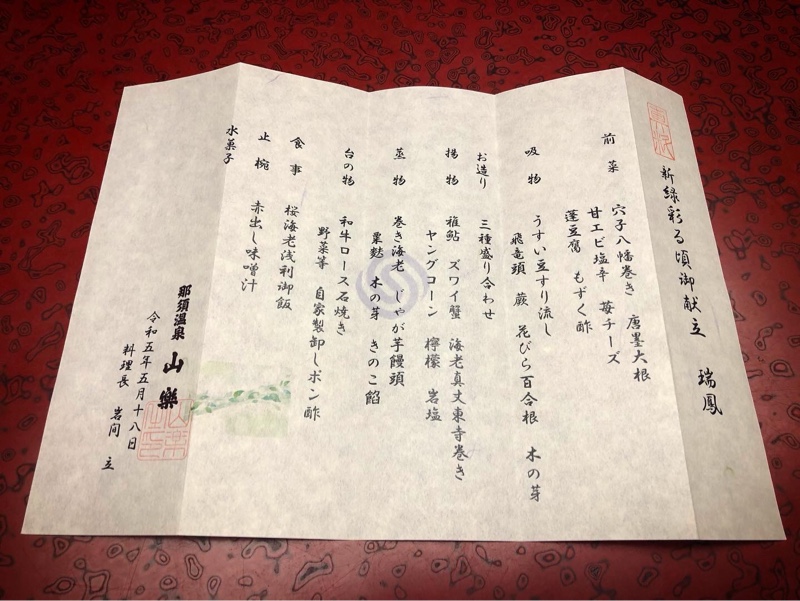 新緑彩る頃御献立 瑞鳳
前菜 穴子八幡巻き 唐墨大根
甘エビ塩辛 苺チーズ
蓬豆腐 もずく酢
吸物 うすい豆すり流し
飛竜頭 蕨 花びら百合根 木の芽
お造り 三種盛り合わせ
揚物 稚鮎 ズワイ蟹 海老真丈東寺巻き
ヤングコーン 檸檬 岩塩
蒸物 巻き海老 じゃが芋饅頭
粟麩 木の芽 きのこ餡
台の物 和牛ロース石焼き
野菜等 自家製卸しポン酢
食事 桜海老浅利御飯
止椀 赤出し味噌汁
水菓子
那須温泉 山樂
令和五年五月十八日
料理長 岩間 立